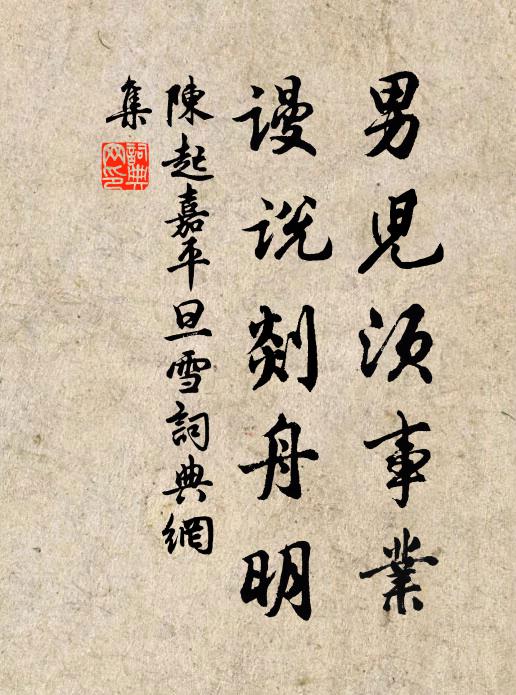 男児須事業
謾説剡舟明
陳起嘉平旦雪詞典網
集
詞典網印